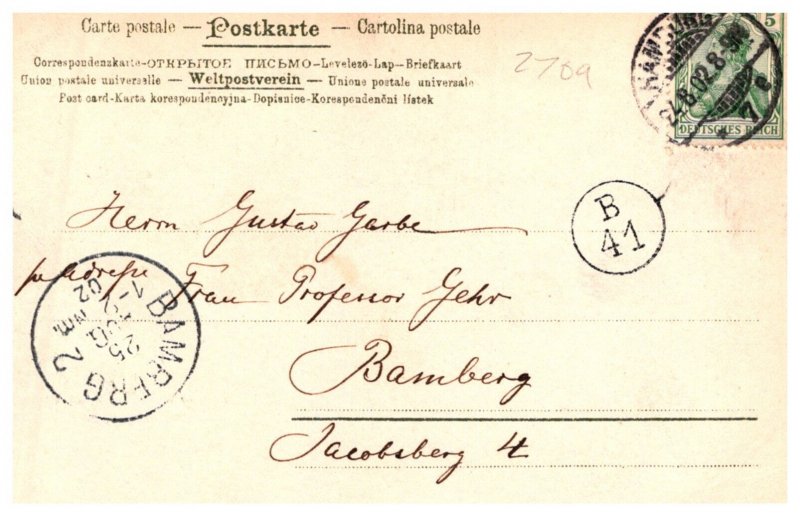 Carte postale — Postkarte — Cartolina postale
Correspondenzkarte-ОТКРЫТОЕ ПИСЬМО-Levelező-Lap-Briefkaart
Union postale universelle — Weltpostverein — Unione postale universale
Post card-Karta korespondencyjna-Dopisnice-Korespondenčni listek
2709
5
HAMBURG
24.8.02.8-9N.
* 7 e
DEUTSCHES REICH
B
41
Herrn Gustav Garbe
pr. Adresse Frau Professor Gehr
Bamberg
Jacobsberg 4
BAMBERG 2
25
AUG
1-2 Nm.
02